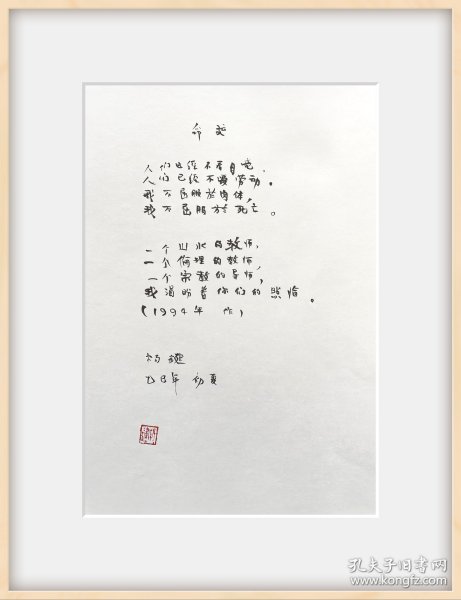 命运
人们已经不看自己,
人们已经不爱劳动。
我不屈服於肉体,
我不屈服於死亡。
一个山水的教师,
一个伦理的教师,
一个宗教的导师,
我渴盼着你们的照临。
(1994年 作)
杨键
乙巳年 初夏
孔夫子旧书网
www.kongfz.com